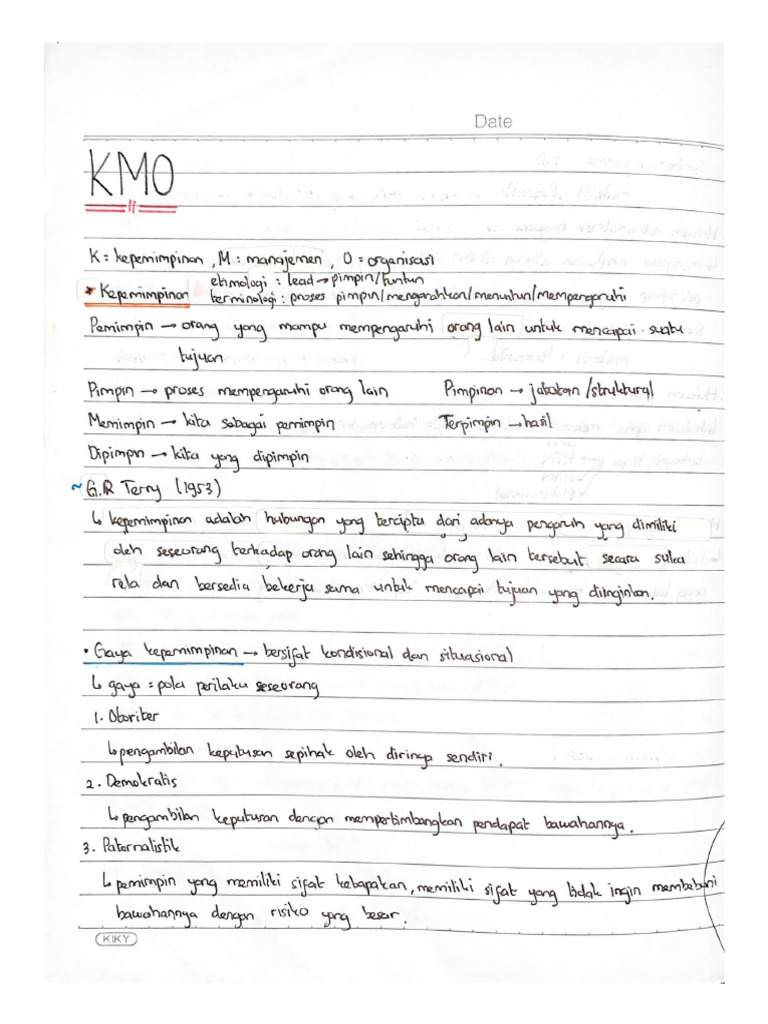 Date
KMO
K = kepemimpinan , M : manajemen , O = organisasi
etimologi : lead → pimpin/tuntun
* Kepemimpinan terminologi : proses pimpin/mengarahkan/menuntun/mempengaruhi
Pemimpin → orang yang mampu mempengaruhi orang lain untuk mencapai suatu
tujuan
Pimpin → proses mempengaruhi orang lain Pimpinan → jabatan /struktural
Memimpin → kita sebagai pemimpin Terpimpin → hasil
Dipimpin → kita yang dipimpin
~ G.R Terry (1953)
↳ kepemimpinan adalah hubungan yang tercipta dari adanya pengaruh yang dimiliki
oleh seseorang terhadap orang lain sehingga orang lain tersebut secara suka
rela dan bersedia bekerja sama untuk mencapai tujuan yang diinginkan.
• Gaya kepemimpinan → bersifat kondisional dan situasional
↳ gaya = pola perilaku seseorang
1. Otoriter
↳ pengambilan keputusan sepihak oleh dirinya sendiri.
2. Demokratis
↳ pengambilan keputusan dengan mempertimbangkan pendapat bawahannya.
3. Paternalistik
↳ pemimpin yang memiliki sifat kebapakan, memiliki sifat yang tidak ingin membebani
bawahannya dengan risiko yang besar.
KIKY